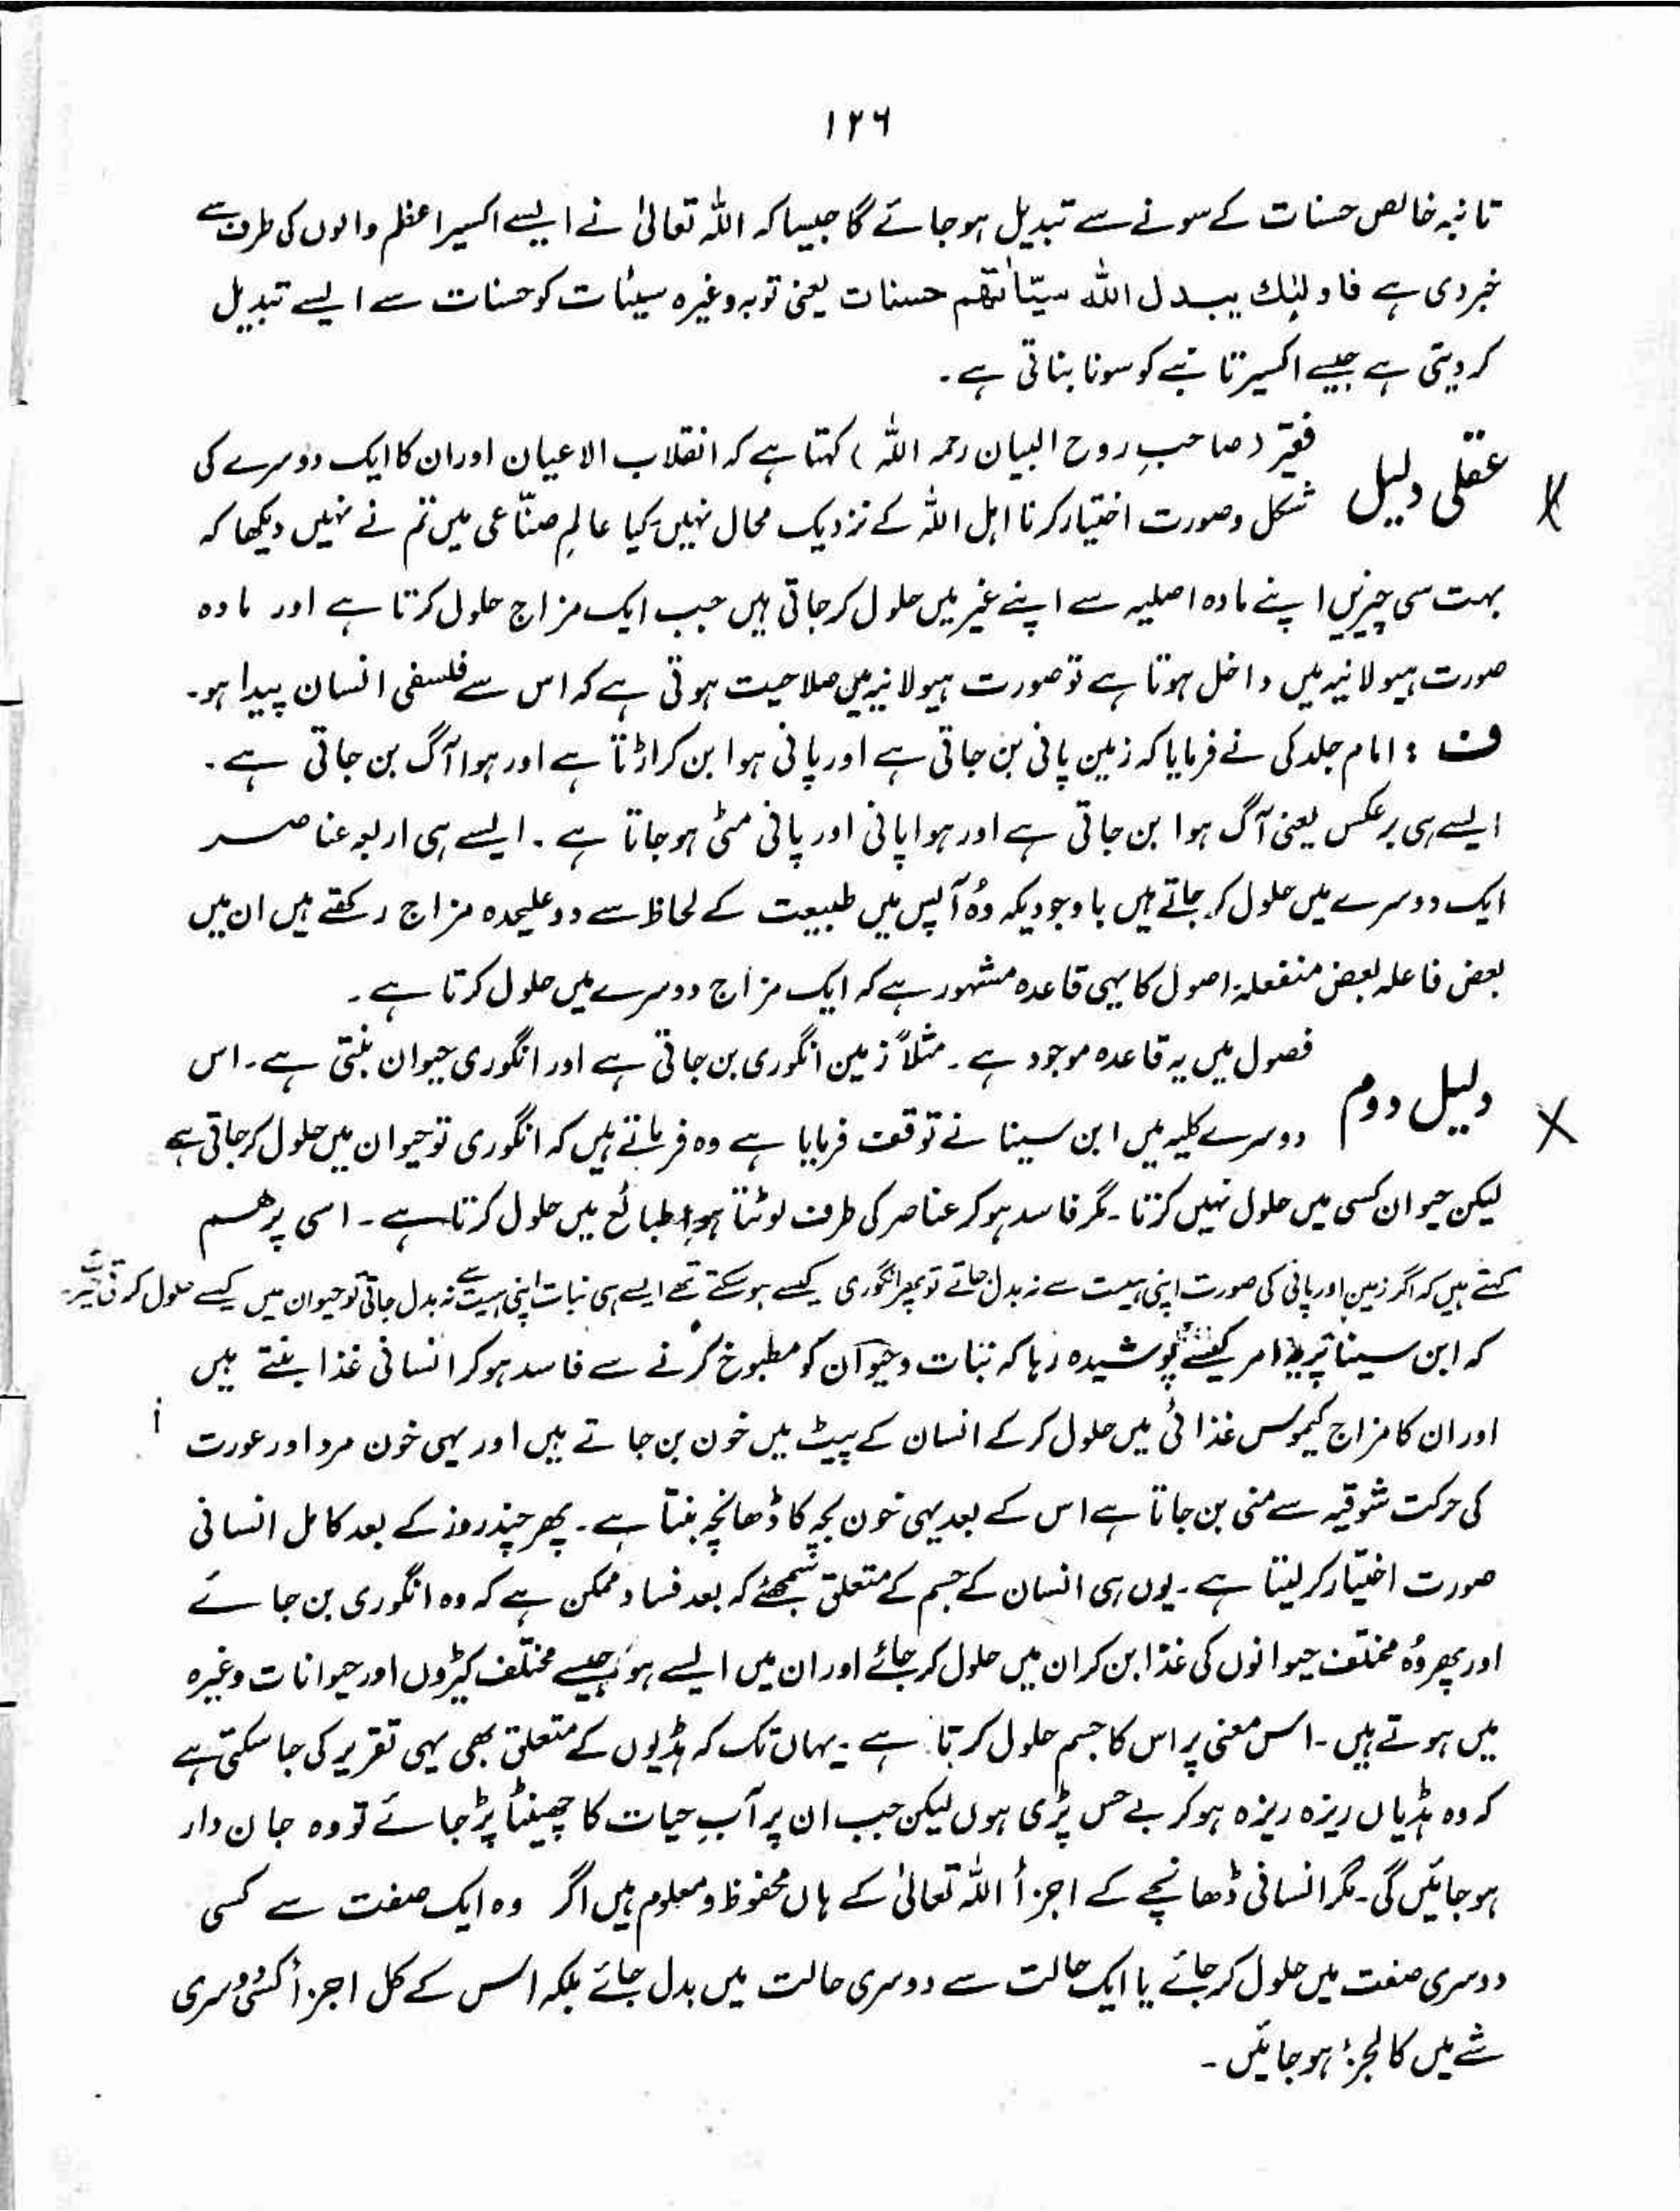 ۱۲۶
تانبہ خالص حسنات کے سونے سے تبدیل ہو جائے گا جیسا کہ اللہ تعالیٰ نے ایسے اکسیر اعظم والوں کی طرف سے
خبر دی ہے فاولٰئك يبدل الله سيّاٰتهم حسنات یعنی توبہ وغیرہ سیئات کو حسنات سے ایسے تبدیل
کر دیتی ہے جیسے اکسیر تانبے کو سونا بناتی ہے۔
عقلی دلیل فقیر (صاحبِ روح البیان رحمہ اللہ) کہتا ہے کہ انقلاب الاعیان اور ان کا ایک دوسرے کی
شکل و صورت اختیار کرنا اہل اللہ کے نزدیک محال نہیں، کیا عالمِ صنّاعی میں تم نے نہیں دیکھا کہ
بہت سی چیزیں اپنے مادہ اصلیہ سے اپنے غیر میں حلول کر جاتی ہیں جب ایک مزاج حلول کرتا ہے اور مادہ
صورت ہیولانیہ میں داخل ہوتا ہے تو صورت ہیولانیہ میں صلاحیت ہوتی ہے کہ اس سے فلسفی انسان پیدا ہو۔
ف : امام جلدکی نے فرمایا کہ زمین پانی بن جاتی ہے اور پانی ہوا بن کر اڑتا ہے اور ہوا آگ بن جاتی ہے۔
ایسے ہی برعکس یعنی آگ ہوا بن جاتی ہے اور ہوا پانی اور پانی مٹی ہو جاتا ہے۔ ایسے ہی اربعہ عناصر
ایک دوسرے میں حلول کر جاتے ہیں باوجودیکہ وُہ آپس میں طبیعت کے لحاظ سے دو علیحدہ مزاج رکھتے ہیں ان میں
بعض فاعلہ بعض منفعلہ اصول کا یہی قاعدہ مشہور ہے کہ ایک مزاج دوسرے میں حلول کرتا ہے۔
دلیل دوم فصول میں یہ قاعدہ موجود ہے۔ مثلاً زمین انگوری بن جاتی ہے اور انگوری حیوان بنتی ہے۔ اس
دوسرے کلیہ میں ابن سینا نے توقف فرمایا ہے وہ فرماتے ہیں کہ انگوری تو حیوان میں حلول کر جاتی ہے
لیکن حیوان کسی میں حلول نہیں کرتا۔ مگر فاسد ہو کر عناصر کی طرف لوٹتا ہوا طبائع میں حلول کرتا ہے۔ اسی پر ہم
کہتے ہیں کہ اگر زمین اور پانی کی صورت اپنی ہیئت سے نہ بدل جاتے تو پھر انگوری کیسے ہو سکتے تھے ایسے ہی نبات اپنی ہیئت سے نہ بدل جاتی تو حیوان میں کیسے حلول کرتی
کہ ابن سینا پر یہ امر کیسے پوشیدہ رہا کہ نبات و حیوان کو مطبوخ کرنے سے فاسد ہو کر انسانی غذا بنتے ہیں
اور ان کا مزاج کیموس غذائی میں حلول کر کے انسان کے پیٹ میں خون بن جاتے ہیں اور یہی خون مرد اور عورت
کی حرکت شوقیہ سے منی بن جاتا ہے اس کے بعد یہی خون بچہ کا ڈھانچہ بنتا ہے۔ پھر چند روز کے بعد کامل انسانی
صورت اختیار کر لیتا ہے۔ یوں ہی انسان کے جسم کے متعلق سمجھئے کہ بعد فساد ممکن ہے کہ وہ انگوری بن جائے
اور پھر وُہ مختلف حیوانوں کی غذا بن کر ان میں حلول کر جائے اور ان میں ایسے ہو، جیسے مختلف کیڑوں اور حیوانات وغیرہ
میں ہوتے ہیں۔ اس معنی پر اس کا جسم حلول کرتا ہے۔ یہاں تک کہ ہڈیوں کے متعلق بھی یہی تقریر کی جا سکتی ہے
کہ وہ ہڈیاں ریزہ ریزہ ہو کر بے حس پڑی ہوں لیکن جب ان پر آبِ حیات کا چھینٹا پڑ جائے تو وہ جان دار
ہو جائیں گی۔ مگر انسانی ڈھانچے کے اجزأ اللہ تعالیٰ کے ہاں محفوظ و معلوم ہیں اگر وہ ایک صفت سے کسی
دوسری صفت میں حلول کر جائے یا ایک حالت سے دوسری حالت میں بدل جائے بلکہ اس کے کل اجزأ کسی دوسری
شے میں کالجزء ہو جائیں۔